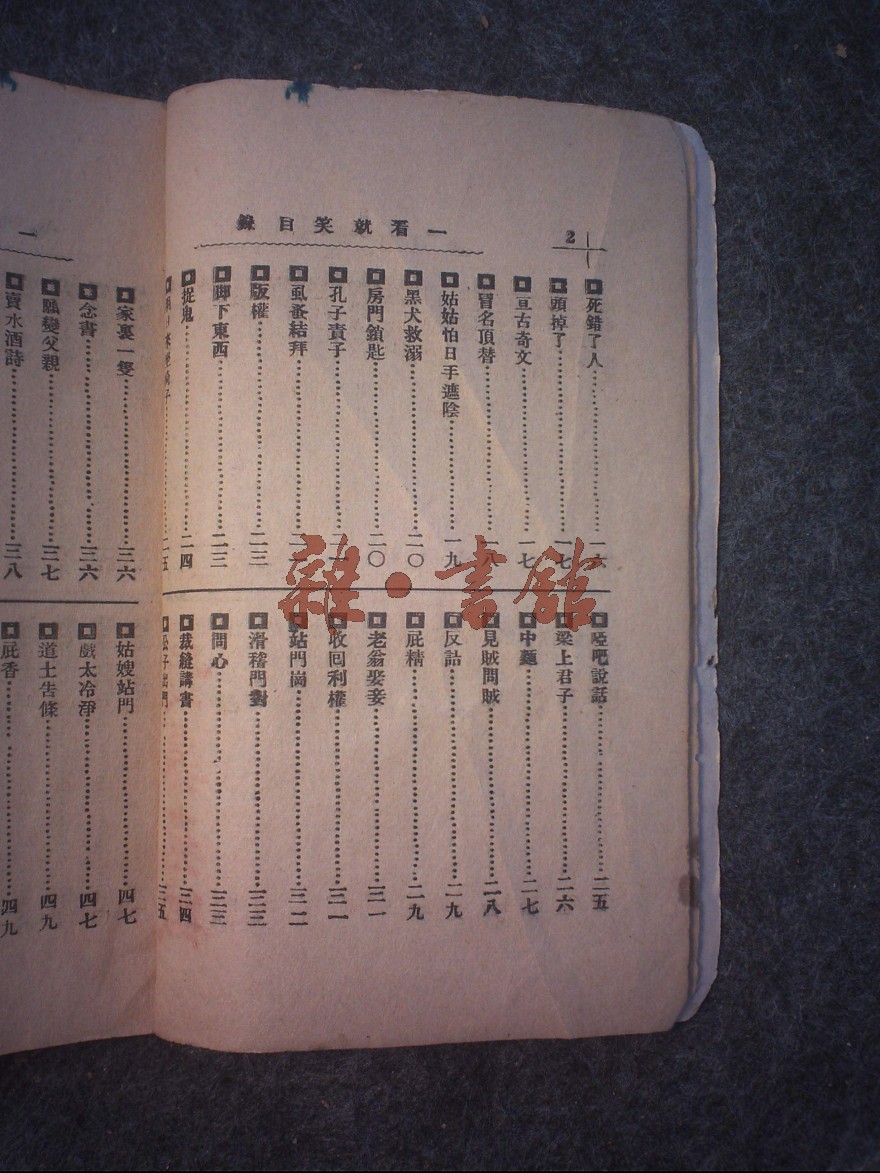 一看就笑目錄
2
死錯了人 一六
頭掉了 一七
亘古奇文 一七
冒名頂替 一八
姑姑怕日手遮陰 一九
黑犬救溺 二〇
房門鎖匙 二〇
孔子責子
虱蚤結拜
版權 二三
脚下東西 二三
捉鬼 二四
二五
啞吧說話 二五
梁上君子 二六
中麵 二七
見賊問賊 二八
反詰 二九
屁精 二九
老翁娶妾 三一
收回利權 三一
站門崗 三二
滑稽門對 三三
問心 三三
裁縫講書 三四
公子出門 三五
一
家裏一隻 三六
念書 三六
變父親 三七
賣水酒詩 三八
姑嫂站門 四七
戲太冷淨 四七
道士告條 四九
屁香 四九
雜·書館